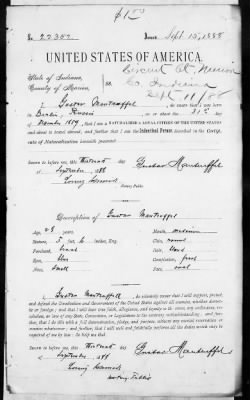 $1.00
No. 22352. Issued Sept 15, 1888
UNITED STATES OF AMERICA.
State of Indiana,
County of Marion,
ss.
Circuit Ct. Marion
Co. Indiana
Sept 11/88
I, Gustav Manteuffel, do
that I was born
in Berlin, Prussia on the 31st day
of March 1859, that I am a NATURALIZED & LOYAL CITIZEN OF THE UNITED STATES
and about to travel abroad, and further that I am the Identical Person described in the Certificate
of Naturalization herewith presented
Sworn to before me, this thirteenth day
of September 1888
Gustav Manteuffel
Notary Public.
Description of Gustav Manteuffel
Age
Mouth medium
Stature 5 ft. 6 inches, Eng.
Chin round
Forehead
Hair
Eyes
Complexion
Nose small
Face oval
I, Gustav Manteuffel, do solemnly swear that I will support, protect,
and defend the Constitution and Government of the United States against all enemies, whether domestic
or foreign; and that I will bear true faith, allegiance, and loyalty to the same, any ordinance, resolution,
or law of any State, Convention, or Legislature to the contrary notwithstanding; and further,
that I do this with a full determination, pledge, and purpose, without any mental reservation or
evasion whatsoever; and further, that I will well and faithfully perform all the duties which may be
required of me by law: So help me God.
Sworn to before me, this thirteenth day
of September 1888
Gustav Manteuffel
Notary Public